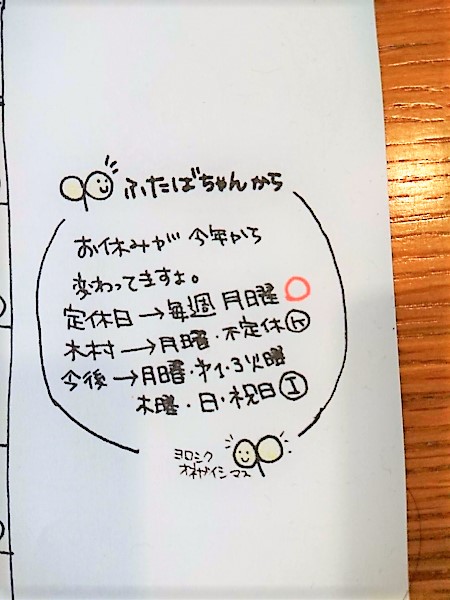 ふたばちゃんから
お休みが 今年から
変わってきますよ。
定休日→毎週 月曜 ○
木村→月曜・不定休 Ⓚ
今後→月曜・㐧1・3火曜
木曜・日・祝日 Ⓘ
ヨロシク
オネガイシマス